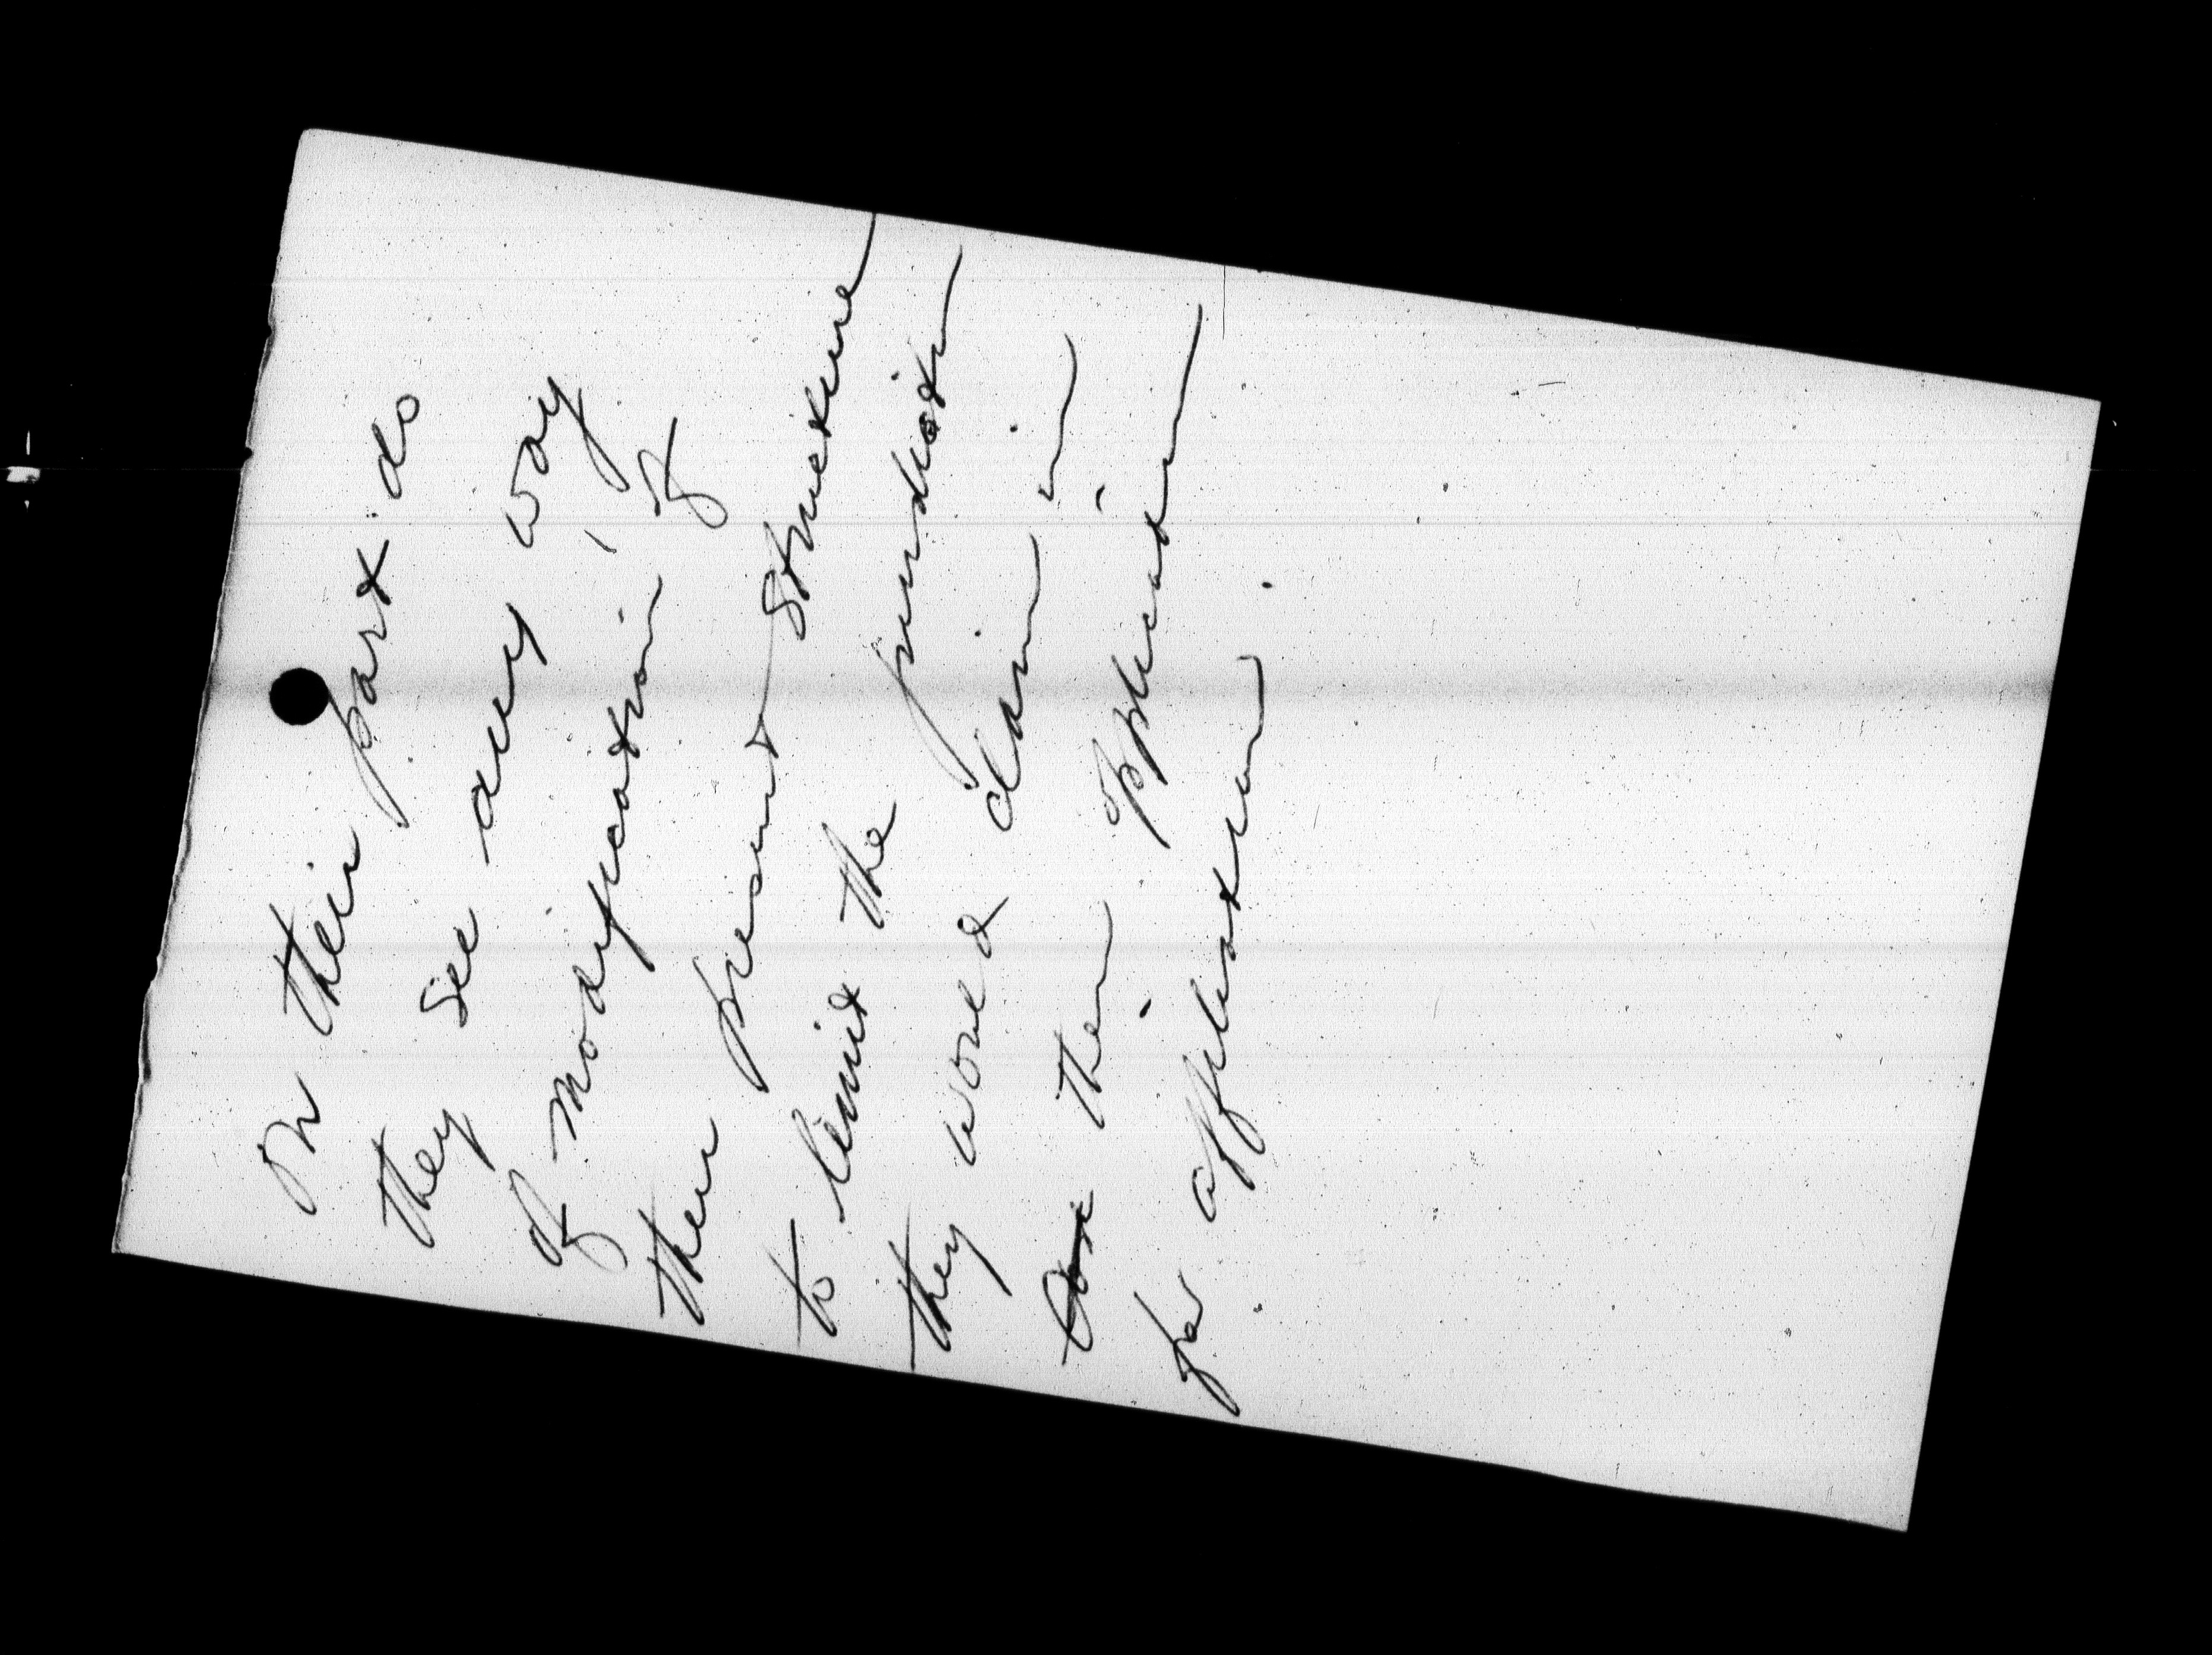 on their part do
they see any way
of modification of
their present structure
to limit the jurisdiction
they would claim in
their opposition
for affiliation.